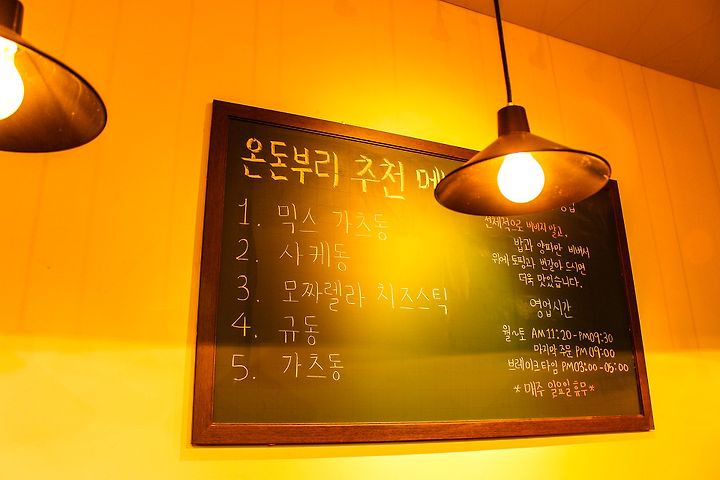 온돈부리 추천 메
1. 믹스 가츠동
2. 사케동
3. 모짜렐라 치즈스틱
4. 규동
5. 가츠동
전체적으로 비비지 말고,
밥과 양파만 비벼서
위에 토핑과 번갈아 드시면
더욱 맛있습니다.
영업시간
월~토 AM 11:20 - PM 09:30
마지막 주문 PM 09:00
브레이크 타임 PM 03:00 - 05:00
*매주 일요일 휴무*